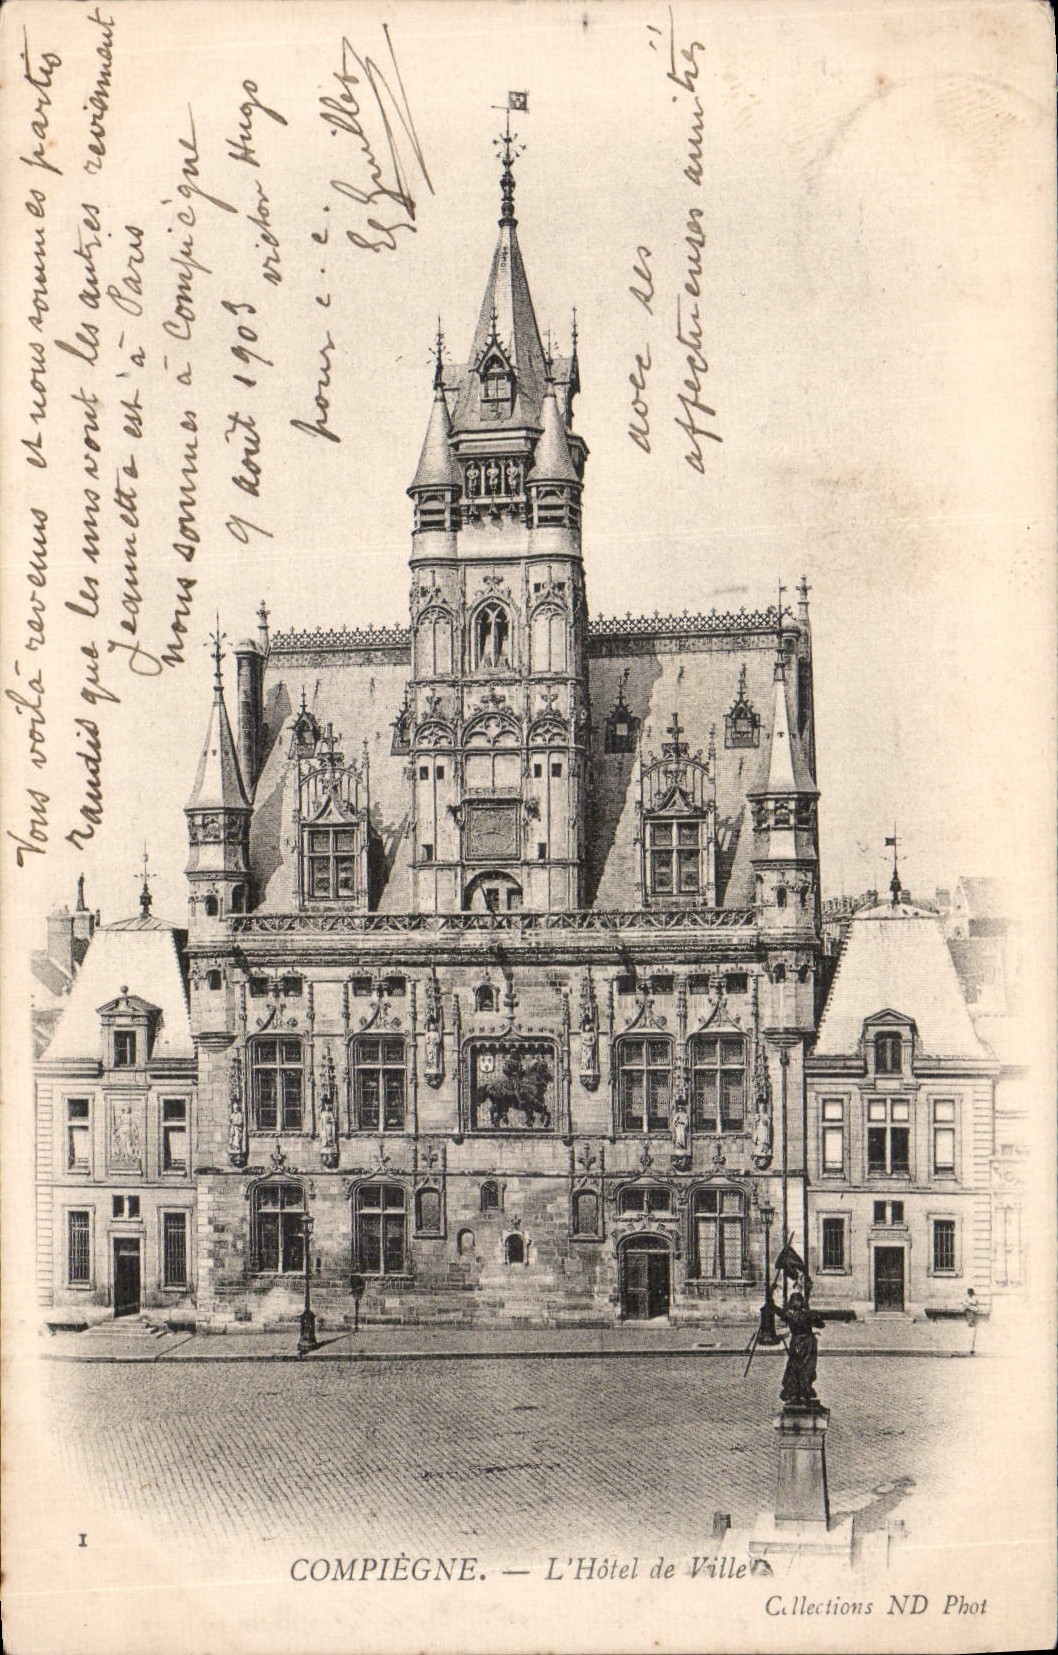 Vous voilà revenus et nous sommes partis
tandis que les uns vont les autres reviennent
Jeannette est à Paris
nous sommes à Compiègne
9 août 1903 victor Hugo
pour c. c.
Guillot
avec ses
affectueuses amitiés
1
COMPIÈGNE. — L'Hôtel de Ville
Collections ND Phot